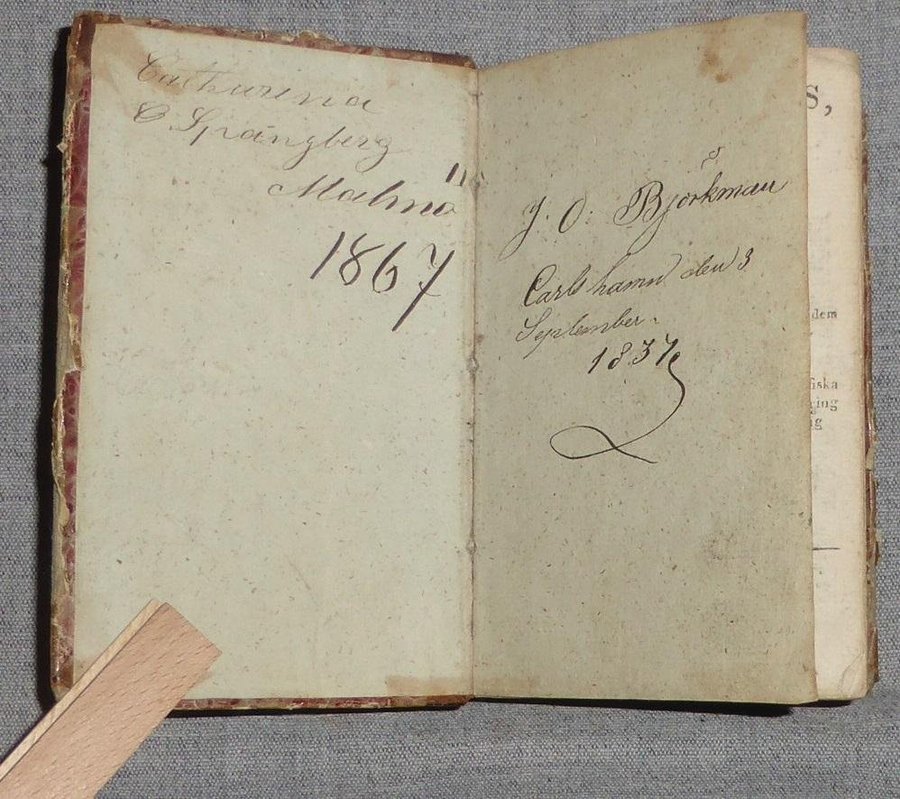 Cathurina
C Spångberg
Malmö
1867
J. O. Björkman
Carlshamn den 3
September.
1837
S,
dem
fiska
ging
ng